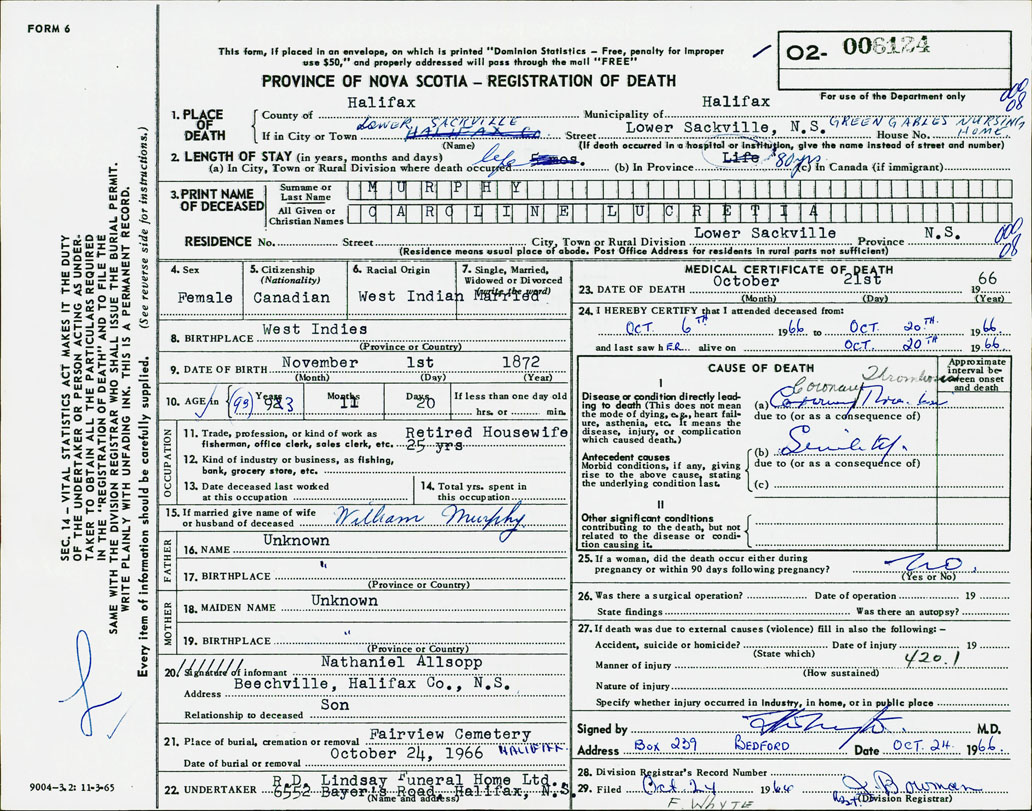 FORM 6
This form, if placed in an envelope, on which is printed "Dominion Statistics – Free, penalty for improper
use $50," and properly addressed will pass through the mail "FREE"
O2- 006124
PROVINCE OF NOVA SCOTIA – REGISTRATION OF DEATH
For use of the Department only
000
08
1. PLACE OF DEATH
County of Halifax Municipality of Halifax
If in City or Town LOWER SACKVILLE HALIFAX CO Street Lower Sackville, N.S. House No. GREEN GABLES NURSING HOME
(Name) (If death occurred in a hospital or institution, give the name instead of street and number)
2. LENGTH OF STAY (in years, months and days)
(a) In City, Town or Rural Division where death occurred life 5 mos. (b) In Province Life 80 yrs (c) in Canada (if immigrant)
3. PRINT NAME OF DECEASED
Surname or Last Name MURPHY
All Given or Christian Names CAROLINE LUCRETIA
RESIDENCE No. Street City, Town or Rural Division Lower Sackville Province N.S.
000
08
(Residence means usual place of abode. Post Office Address for residents in rural parts not sufficient)
4. Sex
Female
5. Citizenship
(Nationality)
Canadian
6. Racial Origin
West Indian
7. Single, Married,
Widowed or Divorced
(write the word)
Married
8. BIRTHPLACE West Indies
(Province or Country)
9. DATE OF BIRTH November 1st 1872
(Month) (Day) (Year)
10. AGE in (93) Years 93 Months 11 Days 20 If less than one day old
hrs. or min.
OCCUPATION
11. Trade, profession, or kind of work as
fisherman, office clerk, sales clerk, etc. Retired Housewife
25 yrs
12. Kind of industry or business, as fishing,
bank, grocery store, etc.
13. Date deceased last worked
at this occupation
14. Total yrs. spent in
this occupation
15. If married give name of wife
or husband of deceased William Murphy
FATHER
16. NAME Unknown
17. BIRTHPLACE "
(Province or Country)
MOTHER
18. MAIDEN NAME Unknown
19. BIRTHPLACE "
(Province or Country)
20. Signature of informant Nathaniel Allsopp
Address Beechville, Halifax Co., N.S.
Relationship to deceased Son
21. Place of burial, cremation or removal Fairview Cemetery
HALIFAX
Date of burial or removal October 24, 1966
22. UNDERTAKER R.D. Lindsay Funeral Home Ltd.
6552 Bayer's Road, Halifax, N.S.
(Name and address)
MEDICAL CERTIFICATE OF DEATH
23. DATE OF DEATH October 21st 1966
(Month) (Day) (Year)
24. I HEREBY CERTIFY that I attended deceased from:
OCT. 6TH 1966 to OCT. 20TH 1966
and last saw hER alive on OCT. 20TH 1966
CAUSE OF DEATH
Approximate
interval be-
tween onset
and death
I
Disease or condition directly lead-
ing to death (This does not mean
the mode of dying, e.g., heart fail-
ure, asthenia, etc. It means the
disease, injury, or complication
which caused death.)
Coronary Thrombosis
(a) Coronary Thrombosis
due to (or as a consequence of)
Antecedent causes
Morbid conditions, if any, giving
rise to the above cause, stating
the underlying condition last.
(b) Senility.
due to (or as a consequence of)
(c)
II
Other significant conditions
contributing to the death, but not
related to the disease or condi-
tion causing it.
25. If a woman, did the death occur either during
pregnancy or within 90 days following pregnancy? NO.
(Yes or No)
26. Was there a surgical operation? Date of operation 19
State findings Was there an autopsy?
27. If death was due to external causes (violence) fill in also the following: –
Accident, suicide or homicide? Date of injury 19
(State which)
420.1
Manner of injury
(How sustained)
Nature of injury
Specify whether injury occurred in industry, in home, or in public place
Signed by M.D.
Address Box 239 BEDFORD Date OCT. 24. 1966.
28. Division Registrar's Record Number
29. Filed Oct. 24 1966 Bowman
(Division Registrar)
F. WHYTE
9004-3.2: 11-3-65
SEC. 14 – VITAL STATISTICS ACT MAKES IT THE DUTY
OF THE UNDERTAKER OR PERSON ACTING AS UNDER-
TAKER TO OBTAIN ALL THE PARTICULARS REQUIRED
IN THE "REGISTRATION OF DEATH" AND TO FILE THE
SAME WITH THE DIVISION REGISTRAR WHO SHALL ISSUE THE BURIAL PERMIT.
WRITE PLAINLY WITH UNFADING INK. THIS IS A PERMANENT RECORD.
Every item of information should be carefully supplied. (See reverse side for instructions.)